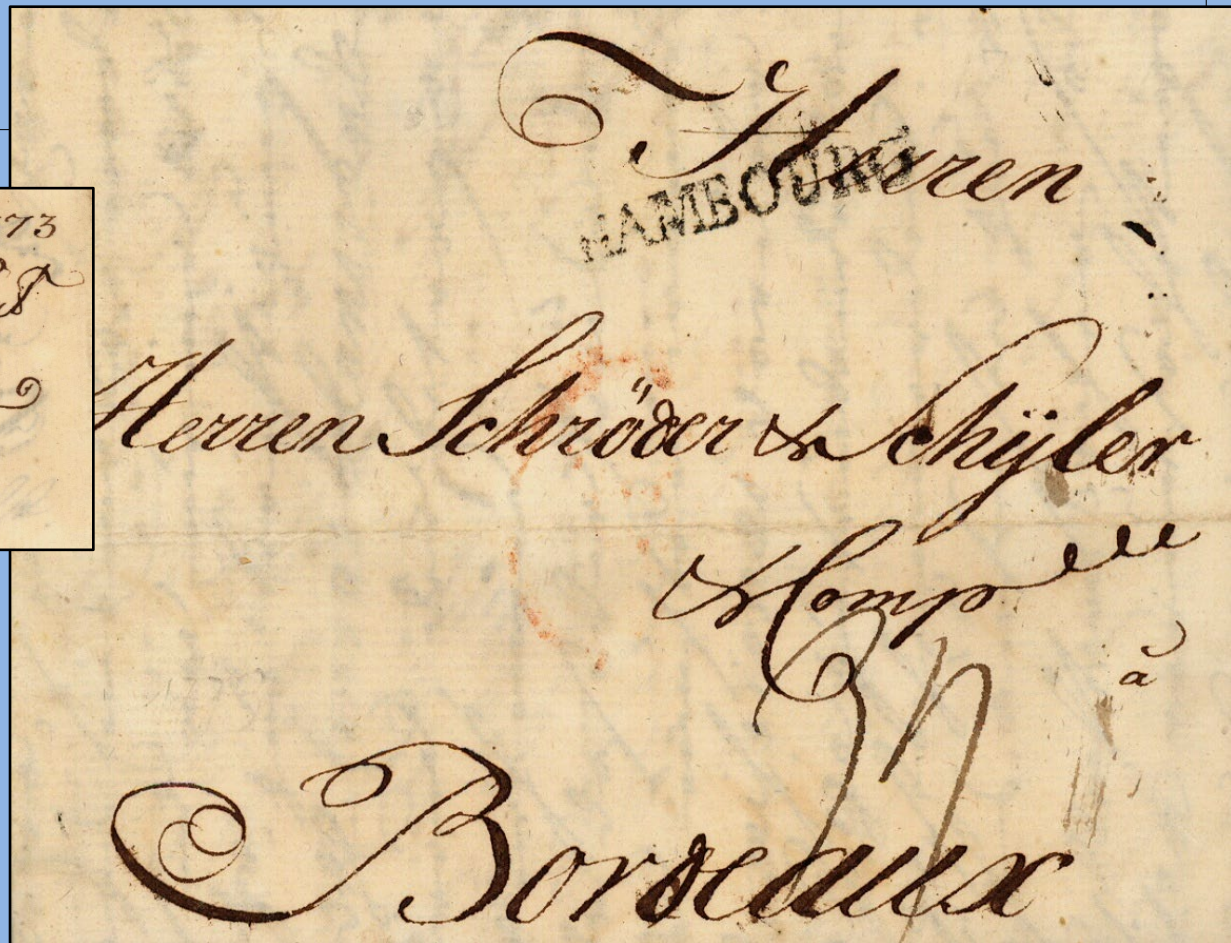 Herren
HAMBOURG
73
Herren Schröder & Schÿler
& Comp
à
Bordeaux